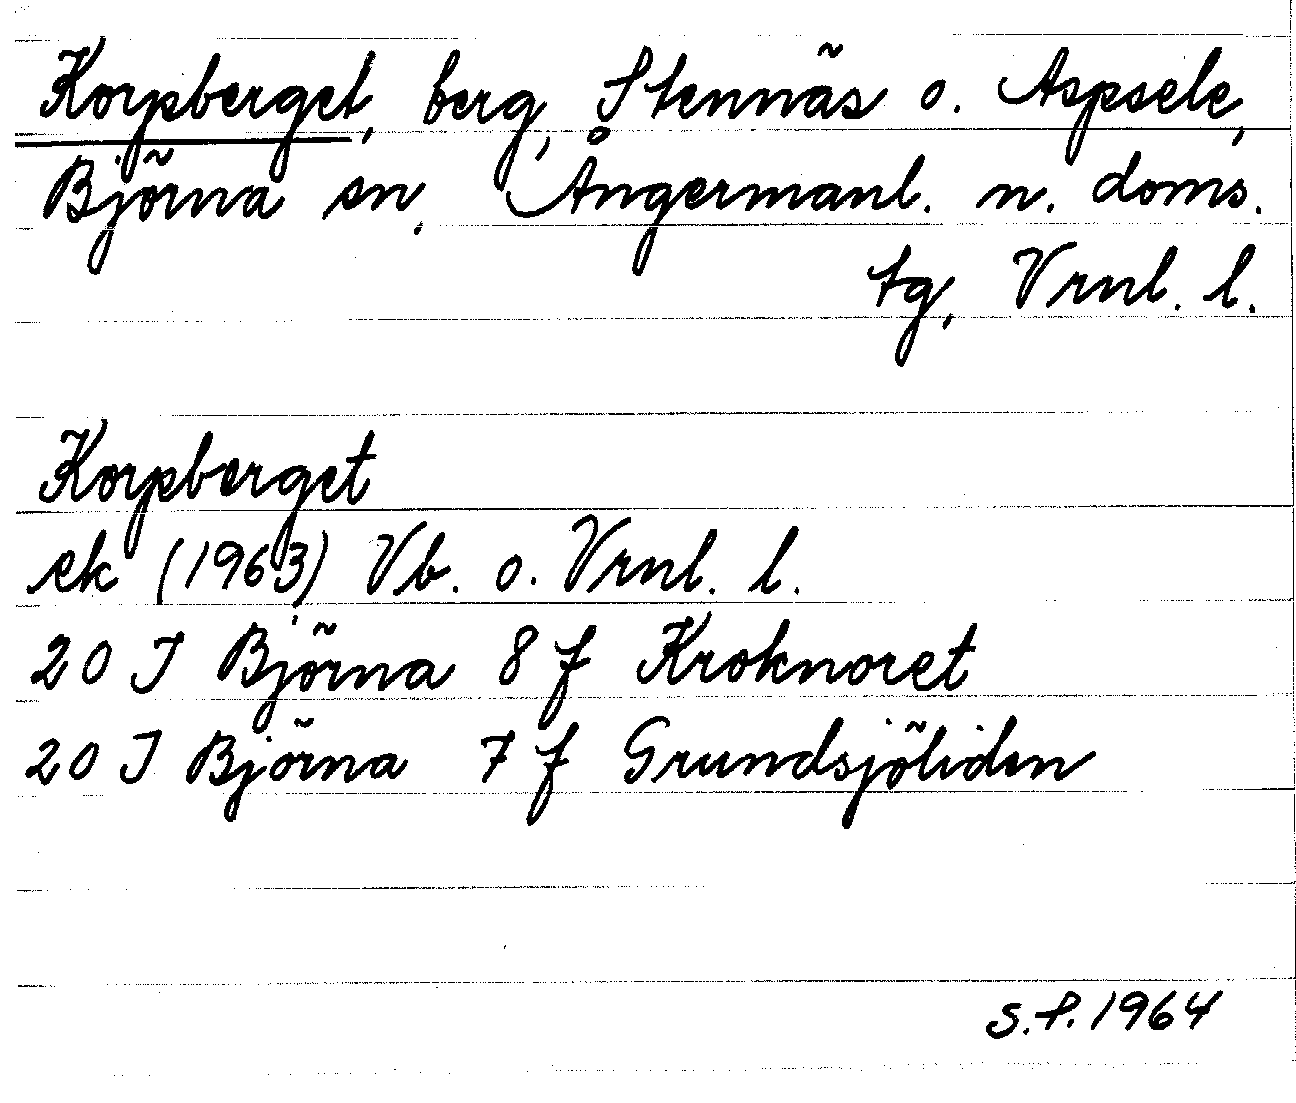 Korpberget, berg, Stennäs o. Aspsele,
Björna sn, Ångermanl. n. doms.
tg, Vrnl. l.
Korpberget
ek (1963) Vb. o. Vrnl. l.
20 I Björna 8 f Kroknoret
20 I Björna 7 f Grundsjöliden
S.P. 1964